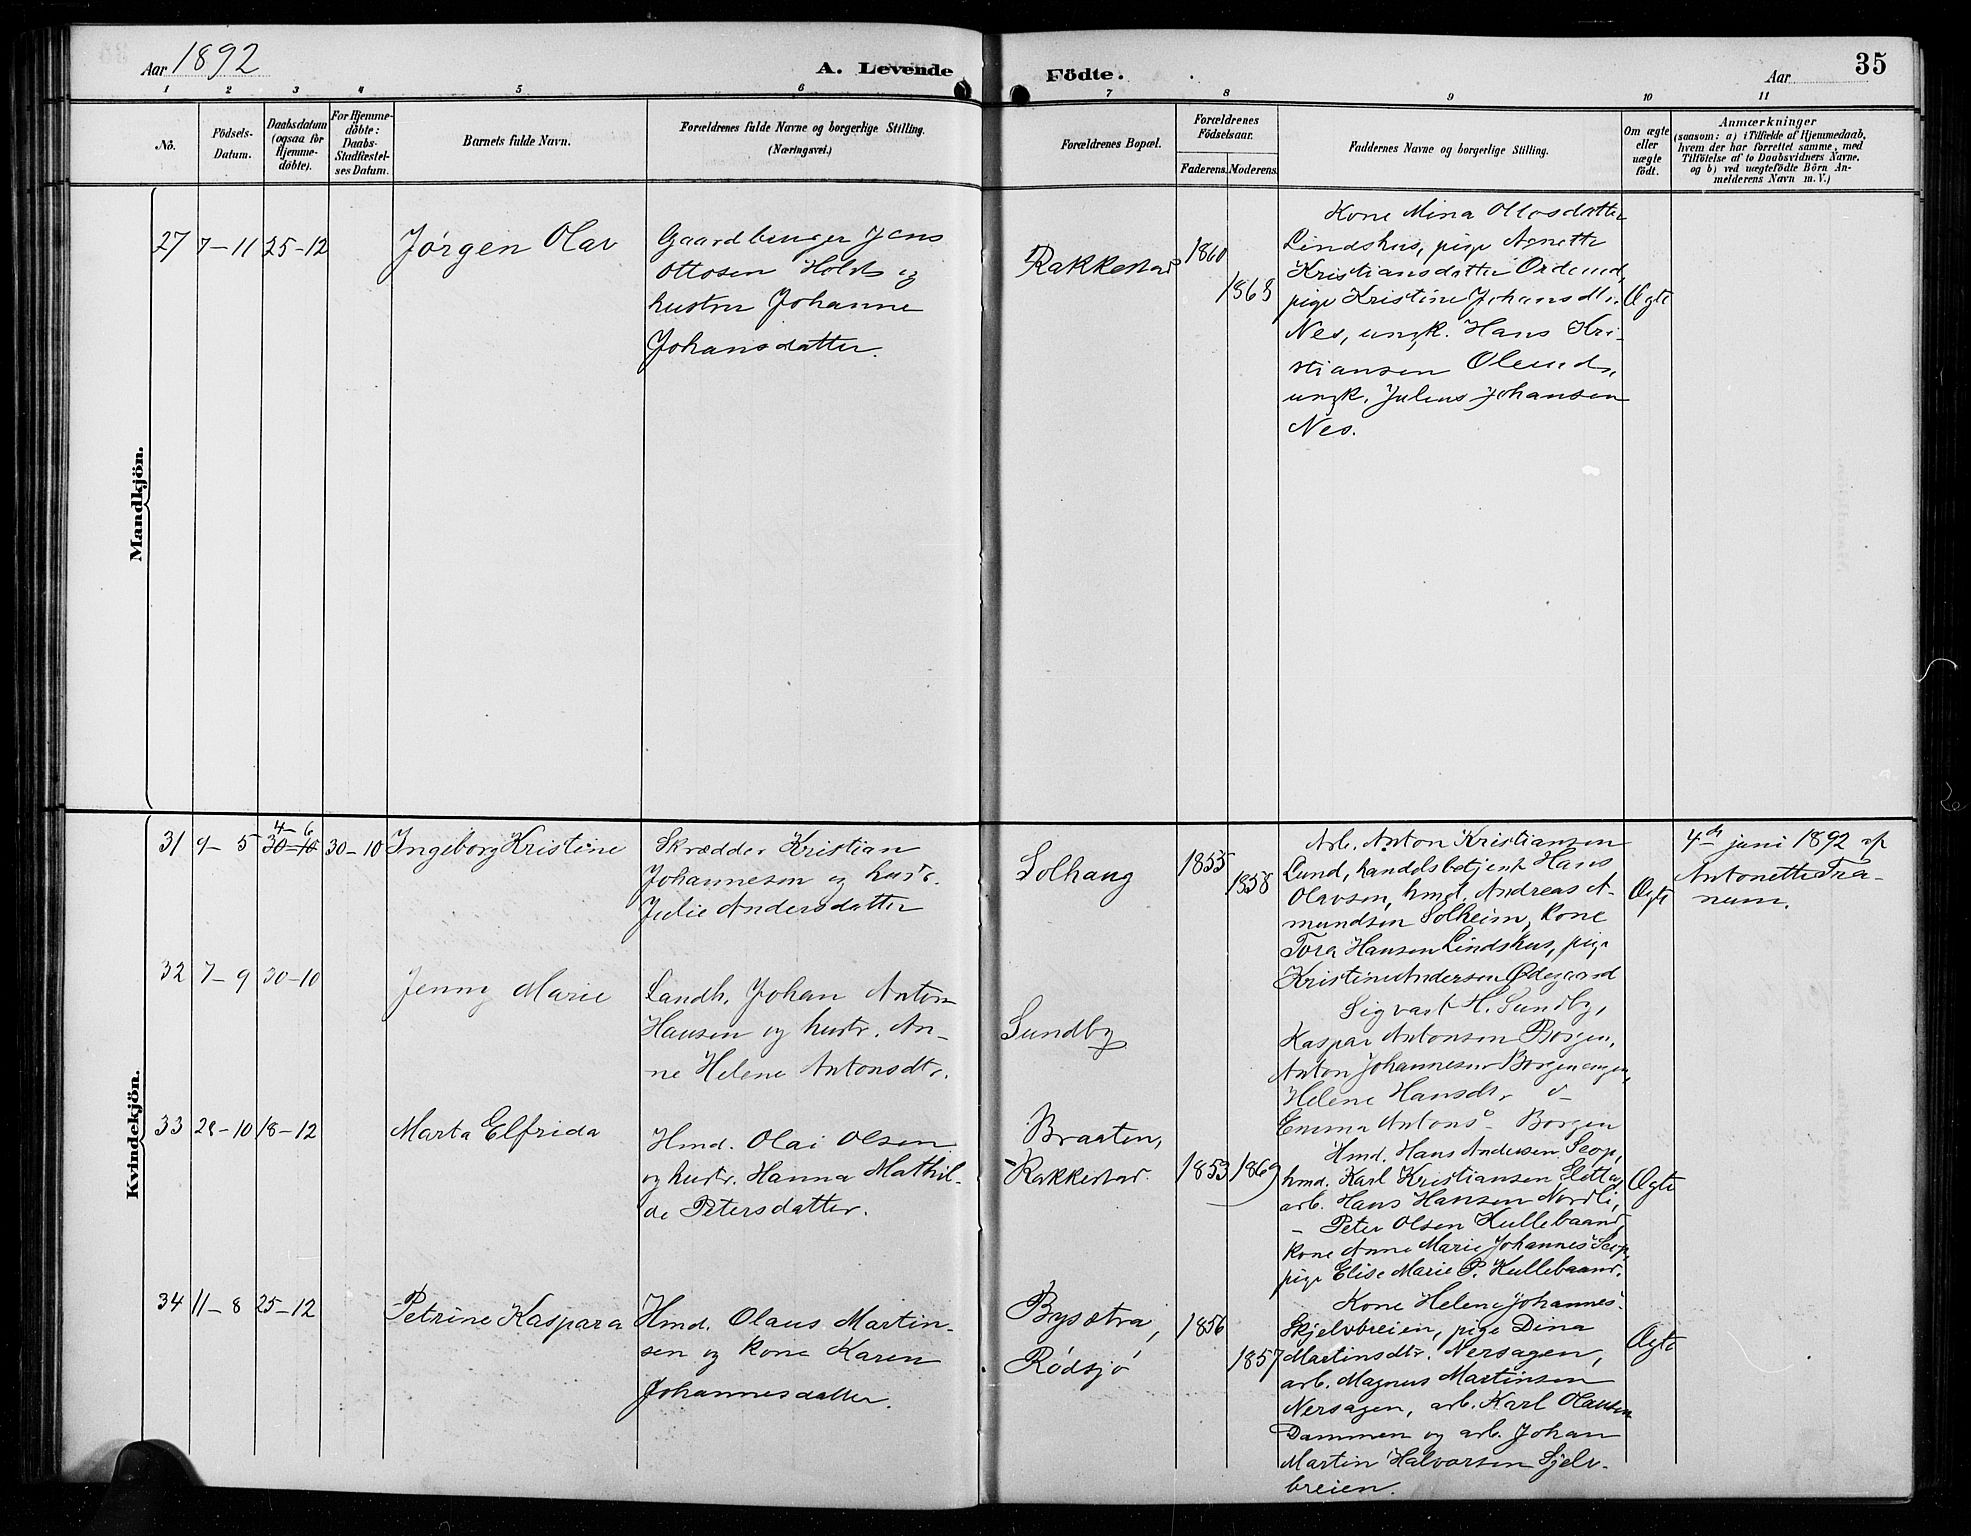 Aar 1892
A. Levende
Födte.
Aar
35
1 2 3 4 5 6 7 8 9 10 11
No.
Födsels-
Datum.
Daabsdatum
(ogsaa for
Hjemme-
döbte).
For Hjemme-
döbte:
Daabs-
Stadfæstel-
ses Datum.
Barnets fulde Navn.
Forældrenes fulde Navne og borgerlige Stilling.
(Næringsvei.)
Forældrenes Bopæl.
Forældrenes
Födselsaar.
Faderens. Moderens.
Faddernes Navne og borgerlige Stilling.
Om ægte
eller
uægte
födt.
Anmærkninger
(saasom: a) i Tilfælde af Hjemmedaab,
hvem der har forrettet samme, med
Tilföielse af to Daabsvidners Navne,
og b) ved uægtefödte Börn An-
melderens Navn m. V.)
Mandkjön.
27 7-11 25-12
Jørgen Olav
Gaardbruger Jens
Ottosen Holt og
hustru Johanne
Johansdatter.
Rakkestad
1860
1868
Kone Mina Ottosdatter
Lindshus, pige Anette
Kristiansdatter
pige Kristine Johansdtr.
Nes, ungk. Hans Kri-
stiansen
ungk. Julius Johansen
Nes.
Ægte
Kvindekjön.
31 9-5 30-10 4-6 30-10
Ingeborg Kristine
Skrædder Kristian
Johannesen og hustr.
Julie Andersdatter
Solhaug
1855
1858
Arb. Anton Kristiansen
Lund, handelsbetjent Hans
Olavsen, hmd. Andreas A-
mundsen Solheim, kone
Tora Hansen Lindshus, pige
Kristine Andersen Ødegaard
Ægte
4de juni 1892 af
Antonette Tra-
num.
32 7-9 30-10
Jenny Marie
Landh. Johan Anton
Hansen og hustr. An-
ne Helene Antonsdtr.
Sundby
Sigvart H. Sundby,
Kaspar Antonsen Borgen,
Anton Johannesen Borgenengen,
Helene Hansdtr.
Emma Antons- Borgen
33 28-10 18-12
Marta Elfrida
Hmd. Olai Olsen
og hustr. Hanna Mathil-
de Petersdatter.
Braaten,
Rakkestad.
1853 1869
Hmd. Hans Andersen Scop,
hmd. Karl Kristiansen
arb. Hans Hansen Nordli,
- Peter Olsen Kullebaand,
kone Anne Marie Johannes Scop,
pige Elise Marie P. Kullebaand.
Ægte
34 11-8 25-12
Petrine Kaspara
Hmd. Olaus Martin-
sen og kone Karen
Johannesdatter.
Bysætra,
Rødsjø
1856
1857
Kone Helene Johannes-
Skjelvbreien, pige Dina
Martinsdtr. Nersagen,
arb. Magnus Martinsen
Nersagen, arb. Karl Olausen
Dammen og arb. Johan
Martin Halvorsen Sjelv-
breien.
Ægte